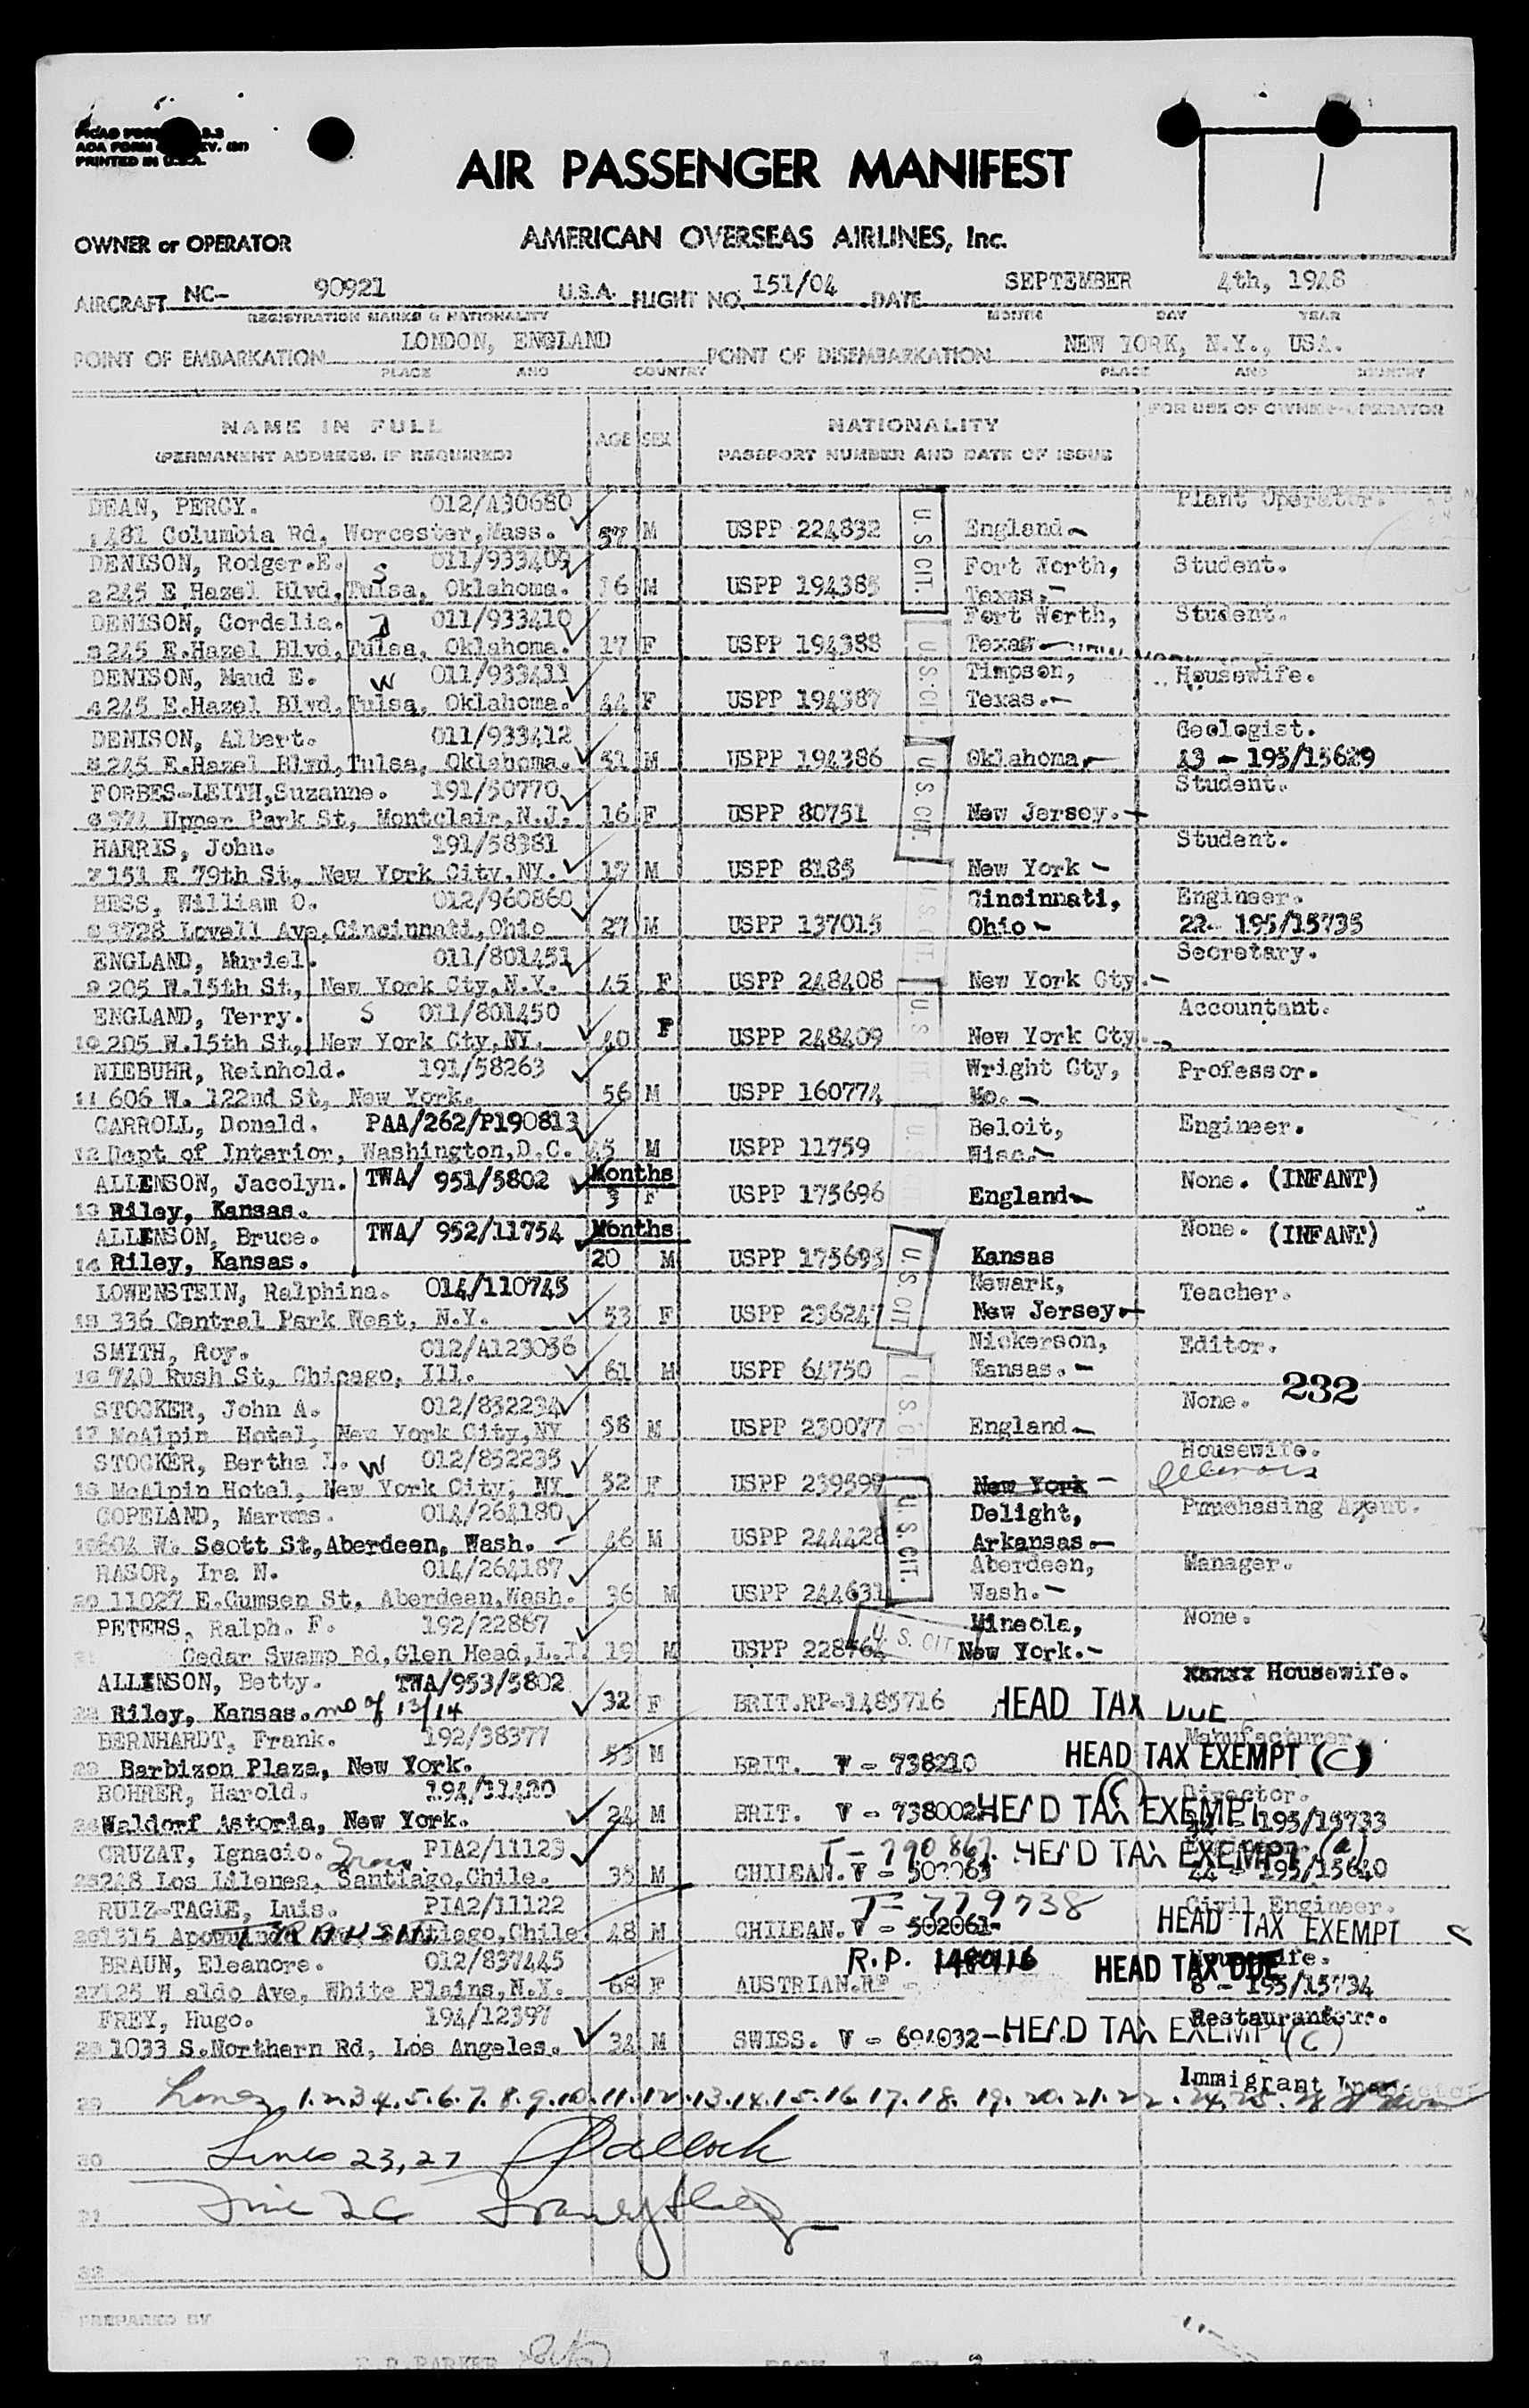 PRINTED IN U.S.A.
AIR PASSENGER MANIFEST
1
OWNER or OPERATOR
AMERICAN OVERSEAS AIRLINES, Inc.
AIRCRAFT NC- 90921 U.S.A. FLIGHT NO. 151/04 DATE SEPTEMBER 4th, 1948
REGISTRATION MARKS & NATIONALITY MONTH DAY YEAR
POINT OF EMBARKATION LONDON, ENGLAND POINT OF DISEMBARKATION NEW YORK, N.Y., USA.
PLACE AND COUNTRY PLACE AND COUNTRY
NAME IN FULL AGE SEX NATIONALITY FOR USE OF OWNER-OPERATOR
(PERMANENT ADDRESS, IF REQUIRED) PASSPORT NUMBER AND DATE OF ISSUE
DEAN, PERCY. 012/A30680 Plant Operator.
1 481 Columbia Rd, Worcester, Mass. 57 M USPP 224832 U.S. CIT. England
DENISON, Rodger.E. S 011/933409 Fort Worth, Student.
2 245 E Hazel Blvd, Tulsa, Oklahoma. 16 M USPP 194385 Texas.
DENISON, Cordelia. 011/933410 Fort Worth, Student.
3 245 E.Hazel Blvd, Tulsa, Oklahoma. 17 F USPP 194388 U.S. CIT. Texas
DENISON, Maud E. W 011/933411 Timpson, Housewife.
4 245 E.Hazel Blvd, Tulsa, Oklahoma. 44 F USPP 194387 Texas.
DENISON, Albert. 011/933412 Geologist.
5 245 E.Hazel Blvd, Tulsa, Oklahoma. 51 M USPP 194386 U.S. CIT. Oklahoma, 43 - 195/15629
FORBES-LEITH, Suzanne. 191/50770 Student.
6 374 Upper Park St, Montclair, N.J. 16 F USPP 80751 New Jersey.
HARRIS, John. 191/58381 Student.
7 151 E 79th St, New York City, NY. 17 M USPP 8185 New York
HESS, William O. 012/960860 Cincinnati, Engineer.
8 3728 Lovell Ave, Cincinnati, Ohio 27 M USPP 137015 U.S. CIT. Ohio 22- 195/15735
ENGLAND, Muriel. 011/801451 Secretary.
9 205 W.15th St, New York Cty, N.Y. 45 F USPP 248408 U.S. CIT. New York Cty.
ENGLAND, Terry. S 011/801450 Accountant.
10 205 W.15th St, New York Cty, NY. 40 F USPP 248409 New York Cty.
NIEBUHR, Reinhold. 191/58263 Wright Cty, Professor.
11 606 W. 122nd St, New York. 56 M USPP 160774 Mo.
CARROLL, Donald. PAA/262/P190813 Beloit, Engineer.
12 Dept of Interior, Washington, D.C. 45 M USPP 11759 U.S. Wisc.
ALLENSON, Jacolyn. TWA/ 951/5802 Months None. (INFANT)
13 Riley, Kansas. 3 F USPP 175696 England
ALLENSON, Bruce. TWA/ 952/11754 Months None. (INFANT)
14 Riley, Kansas. 20 M USPP 175695 U.S. CIT. Kansas
LOWENSTEIN, Ralphina. 014/110745 Newark, Teacher.
15 336 Central Park West, N.Y. 53 F USPP 236247 New Jersey.
SMITH, Roy. 012/A123036 Nickerson, Editor.
16 740 Rush St, Chicago, Ill. 61 M USPP 64750 U.S. CIT. Kansas.
STOCKER, John A. 012/852234 None. 232
17 McAlpin Hotel, New York City, NY 58 M USPP 230077 England
STOCKER, Bertha L. W 012/852235 Housewife.
18 McAlpin Hotel, New York City, NY 52 F USPP 239597 New York Illinois
COPELAND, Marcus. 014/264180 Delight, Purchasing Agent.
19 604 W. Scott St, Aberdeen, Wash. 46 M USPP 244428 U.S. CIT. Arkansas.
RASOR, Ira N. 014/264187 Aberdeen, Manager.
20 11027 E.Gumsen St, Aberdeen, Wash. 36 M USPP 244631 Wash.
PETERS, Ralph. F. 192/22867 Mineola, None.
Cedar Swamp Rd, Glen Head, L.I. 19 M U.S. CIT New York.
ALLENSON, Betty. TWA/953/5802 Housewife.
22 Riley, Kansas. mo of 13/14 32 F BRIT.RP-1485716 HEAD TAX DUE
BERNHARDT, Frank. 192/38377 Manufacturer.
23 Barbizon Plaza, New York. 53 M BRIT. V - 738210 HEAD TAX EXEMPT (C)
BOHRER, Harold. 194/11420 (C) Director.
24 Waldorf Astoria, New York. 24 M BRIT. V - 738002 HEAD TAX EXEMPT 195/15733
CRUZAT, Ignacio. PIA2/11123 T- 790867. HEAD TAX EXEMPT (a)
25 248 Los Lilenes, Santiago, Chile. 35 M CHILEAN. V - 44 - 195/15640
RUIZ-TAGLE, Luis. PIA2/11122 T= 779738 Civil Engineer.
26 1315 Santiago, Chile 48 M CHILEAN. V - 502061 HEAD TAX EXEMPT
BRAUN, Eleanore. 012/837445 R.P. HEAD TAX DUE
27 125 Waldo Ave, White Plains, N.Y. 68 F AUSTRIAN.RP 8 - 195/15734
FREY, Hugo. 194/12397 Restauranteur.
28 1033 S.Northern Rd, Los Angeles. 34 M SWISS. V - HEAD TAX EXEMPT (C)
Immigrant Inspector
29 Lines 1.2.3.4.5.6.7.8.9.10.11.12.13.14.15.16.17.18.19.20.21.22.24.25.
30 Lines 23,27 Pollock
31 Line 26
32
PREPARED BY
E.R.PARKER